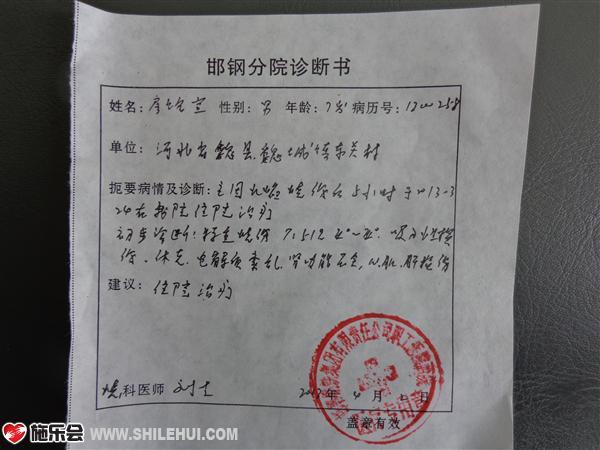 邯钢分院诊断书
姓名: 性别: 男 年龄: 7岁 病历号:
单位: 河北省魏县魏城镇东关村
扼要病情及诊断: 主因 烧伤后5小时于2013-3
24在我院住院治疗
初步诊断: 特重烧伤 吸入性损
伤、休克、电解质紊乱、肾功能不全、心肌、肝损伤
建议: 住院治疗
烧科医师 2013年4月 日
盖章有效
施乐会
www.SHILEHUI.com